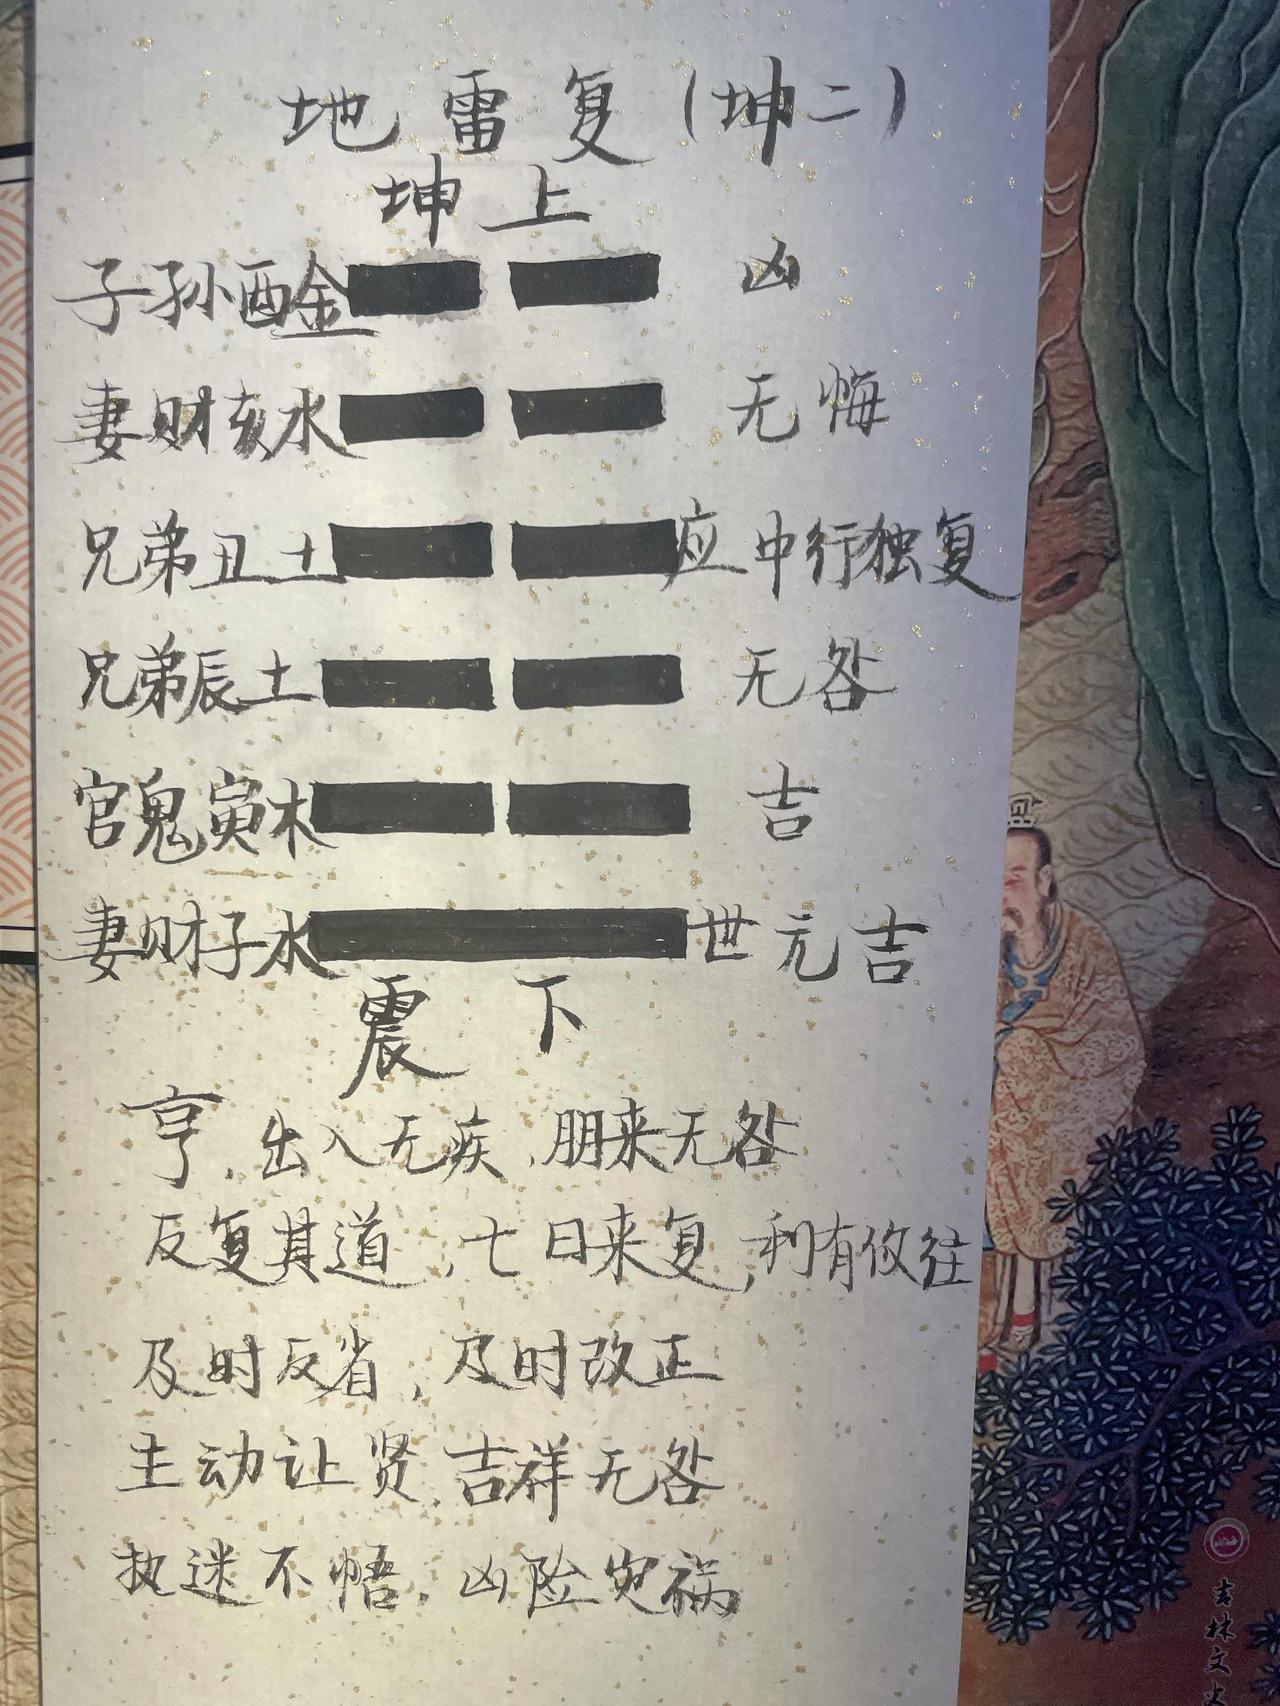 地雷复(坤二)
坤上
子孙酉金 凶
妻财亥水 无悔
兄弟丑土 应 中行独复
兄弟辰土 无咎
官鬼寅木 吉
妻财子水 世 元吉
震下
亨,出入无疾,朋来无咎
反复其道,七日来复,利有攸往
及时反省,及时改正
主动让贤,吉祥无咎
执迷不悟,凶险灾祸
吉林文史